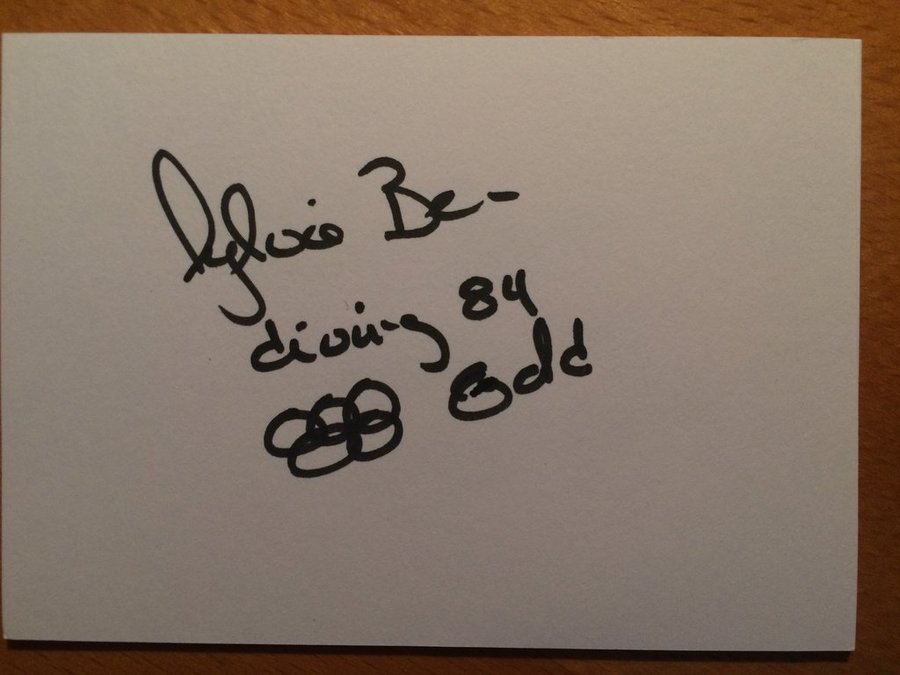 Sylvie Be-
diving 84
Gold